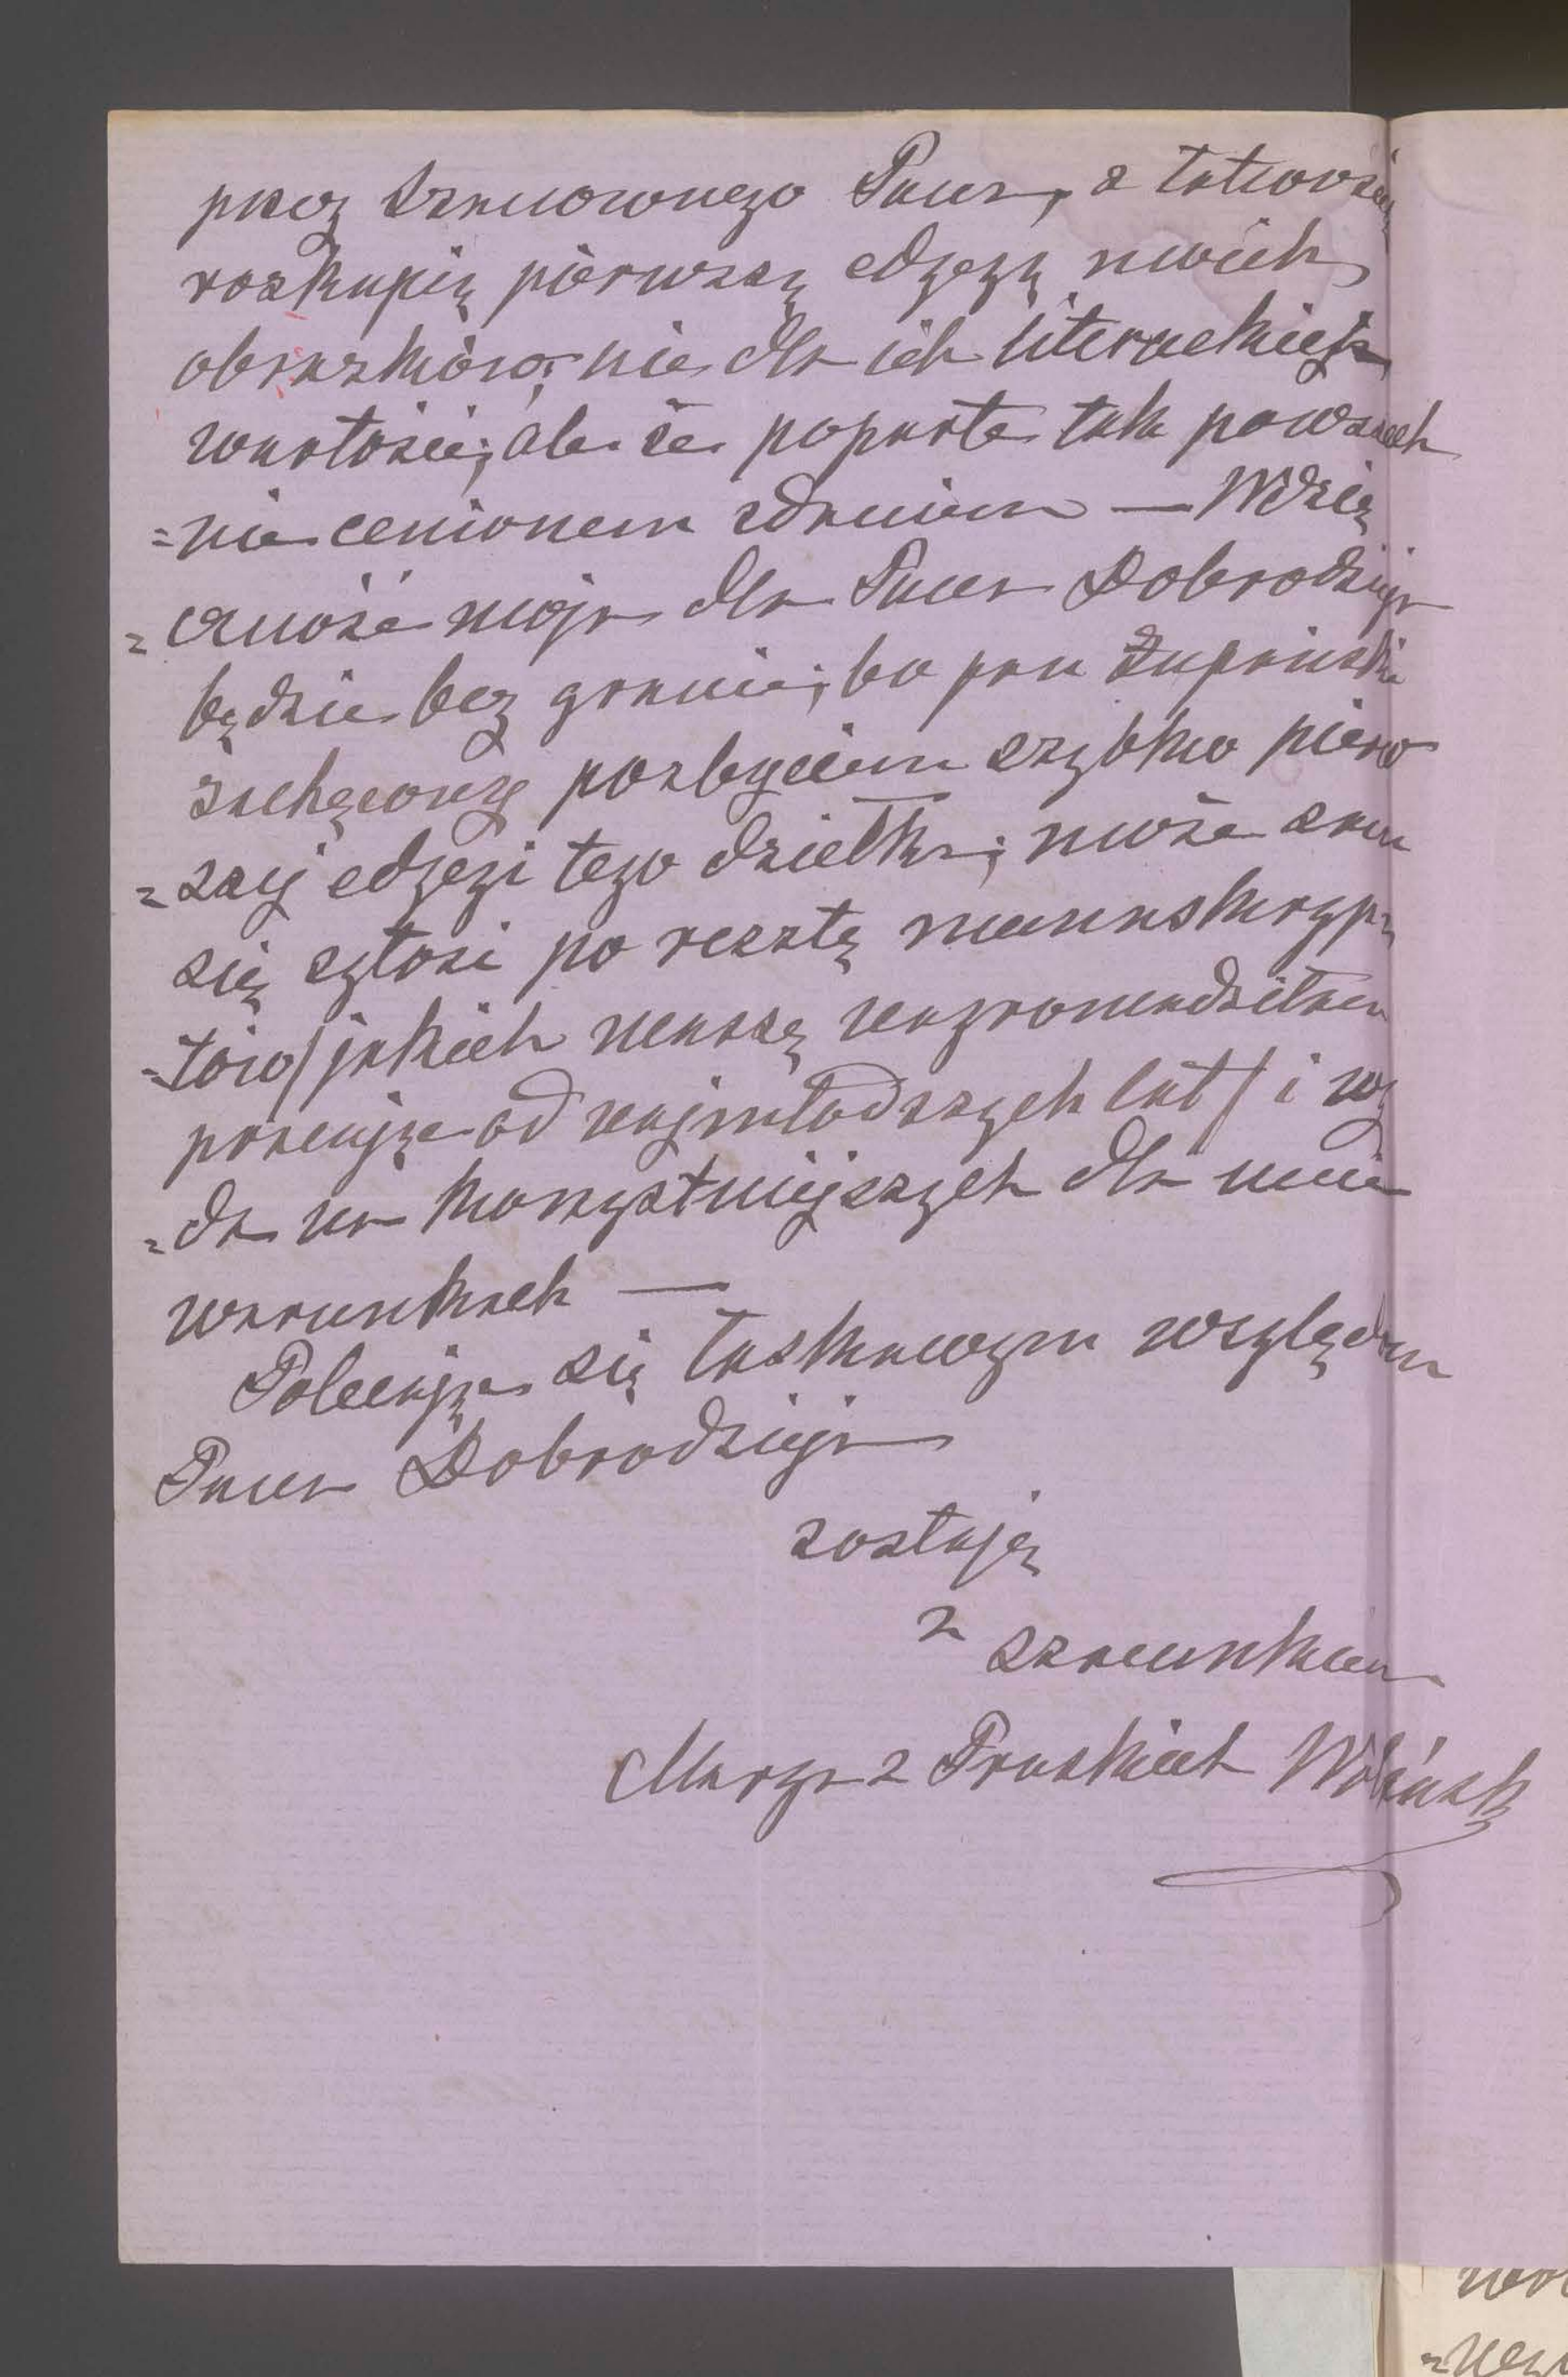 przez Szanownego Pana, z łatwością
rozkupię pierwszą edycyą moich
obrazków; nie dla ich literackiej
wartości; ale że poparte tak powszech
=nie cenionem zdaniem — Wdzię
=czność moja dla Pana Dobrodzieja
będzie bez granic; bo pan Żupański
zachęcony pozbyciem szybko pierw
=szej edycyi tego dziełka; może sam
się zgłosi po resztę manuskryp
=tów/jakich massę nagromadziłam
pracując od najmłodszych lat/ i wy
=da na korzystniejszych dla mnie
warunkach —
Polecając się łaskawym względom
Pana Dobrodzieja
zostaję
z szacunkiem
Marya z Pruskich Wolińska